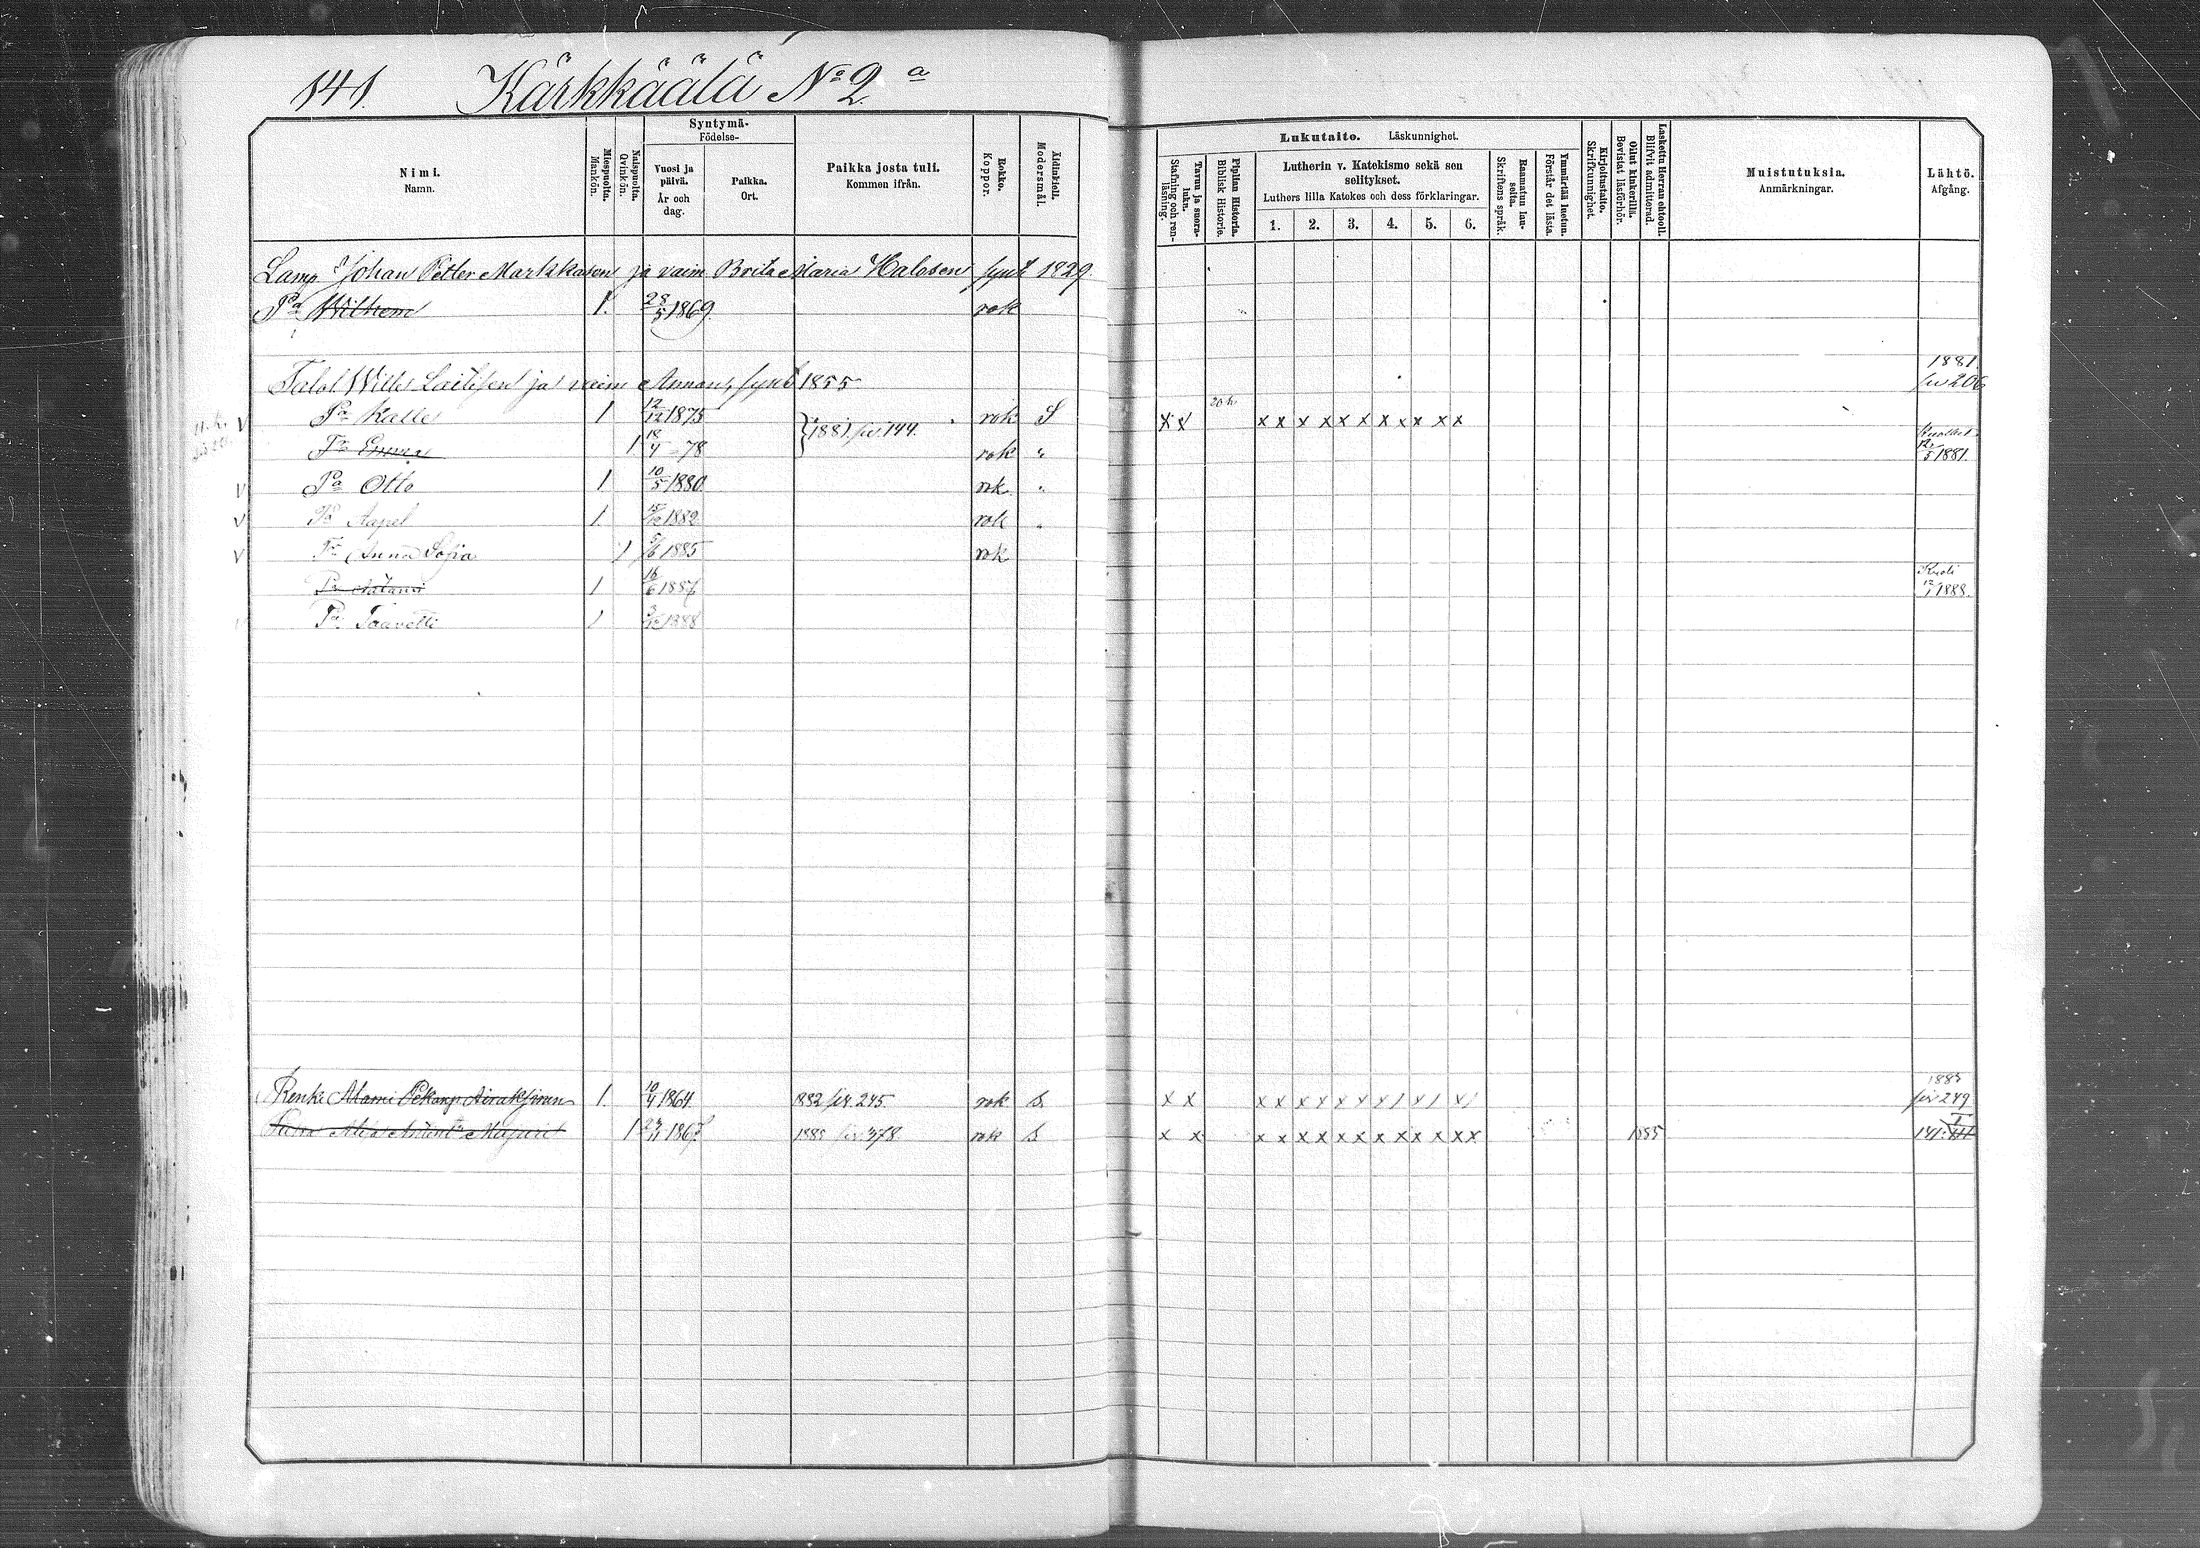 141. Kärkkäälä No 2. a
Nimi. Namn.
Miespuolta. Mankön.
Naispuolta. Qvinkön.
Syntymä- Födelse-
Vuosi ja päivä. År och dag.
Paikka. Ort.
Paikka josta tuli. Kommen ifrån.
Rokko. Koppor.
Äidinkieli. Modersmål.
Lukutaito. Läskunnighet.
Tavuu ja suora- luku. Stafning och ren- läsning.
Piplian Historia. Biblisk Historie.
Lutherin v. Katekismo sekä sen selitykset.
Luthers lilla Katekes och dess förklaringar.
1. 2. 3. 4. 5. 6.
Raamatun lau- seita. Skriftens språk.
Ymmärtää luetun. Förstår det lästa.
Kirjoitustaito. Skrifkunnighet.
Ollut kinkerillä. Bevistat läsförhör.
Laskettu Herran ehtooll. Blifvit admitterad.
Muistutuksia. Anmärkningar.
Lähtö. Afgång.
Lamp Johan Petter Markkasen ja vaim Brita Maria Halosen synt 1829.
Pa Wilhem 1. 28/5 1869. rok
1881.
Talol. Wille Laitisen ja vaim Annan, synt 1855 siv 206
Pa Kalle 1 12/12 1875 1881. siv. 144. rok S x x x x x x x x x x x x x x
Tr Emma 1 18/4 78 rok " Kuollut 12/5 1881.
Pa Otto 1 10/5 1880 rok "
Pa Aapel 1 1882 rok "
Tr Anna Sofia 1 5/6 1885 rok
Pa 1 16/6 1887 Kuoli 12/1 1888.
Pa Taavetti 1 1888
1885
Renki Mami Pekanp Airaksinen 1. 10/4 1864. 882 siv. 245. rok S. x x x x x x x x x / x / x / siv 249
1 1867 1885 siv. 378. rok S x x x x x x x x x x x x x x 1885 141.